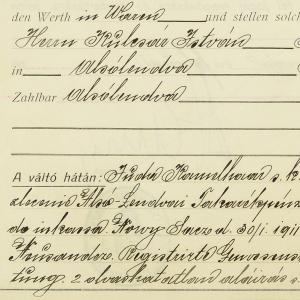 den Werth in Waren und stellen solch
Herrn Kulcsar István
in Alsólendva
Zahlbar Alsólendva
A váltó hátán: Juda s. k.
Alsó-Lendvai Takarékpénz
do inkassa. Nowy Sacz d. 30/1. 191
Registrirte Genossens
tung. 2 olvashatatlan aláirás s